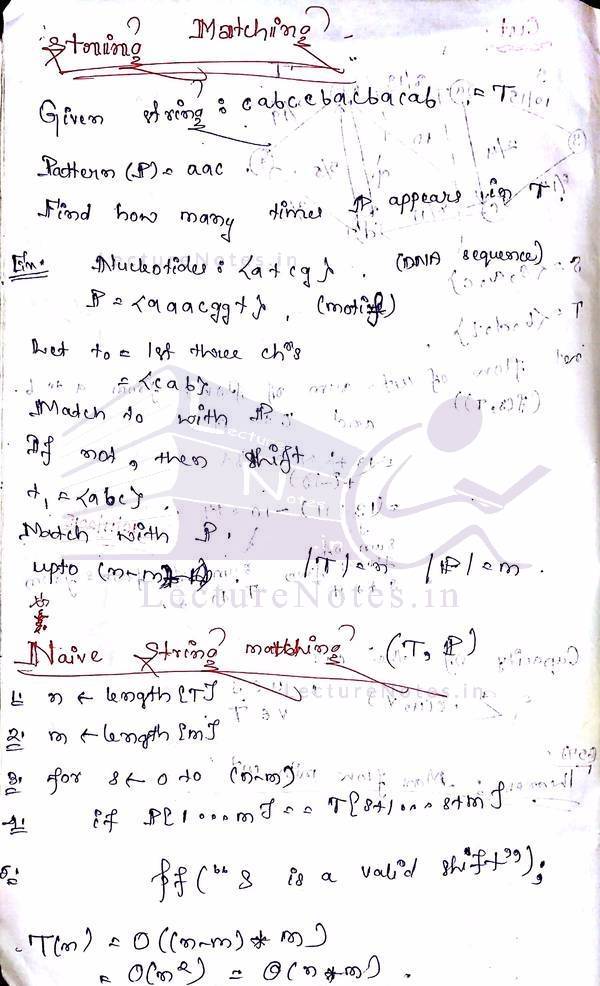 String Matching
Given string : cabccbacbacab = T
Pattern (P) = aac
Find how many times P appears in T.
Ex: Nucleotides : {a t c g} . (DNA sequence)
P = {aaacggt} , (motif)
Let t0 = 1st three ch's
= {cab}
Match t0 with P.
If not, then shift
t1 = {abc}
Match with P.
upto (n-m+1) . |T| = n |P| = m .
LectureNotes.in
Naive String matching (T, P)
1. n ← length [T]
2. m ← length [m]
3. for s ← 0 to (n-m)
4. if P[1...m] == T[s+1...s+m] .
5. pf ("s is a valid shift");
T(n) = O((n-m) * m)
= O(n²) = O(n*m) .